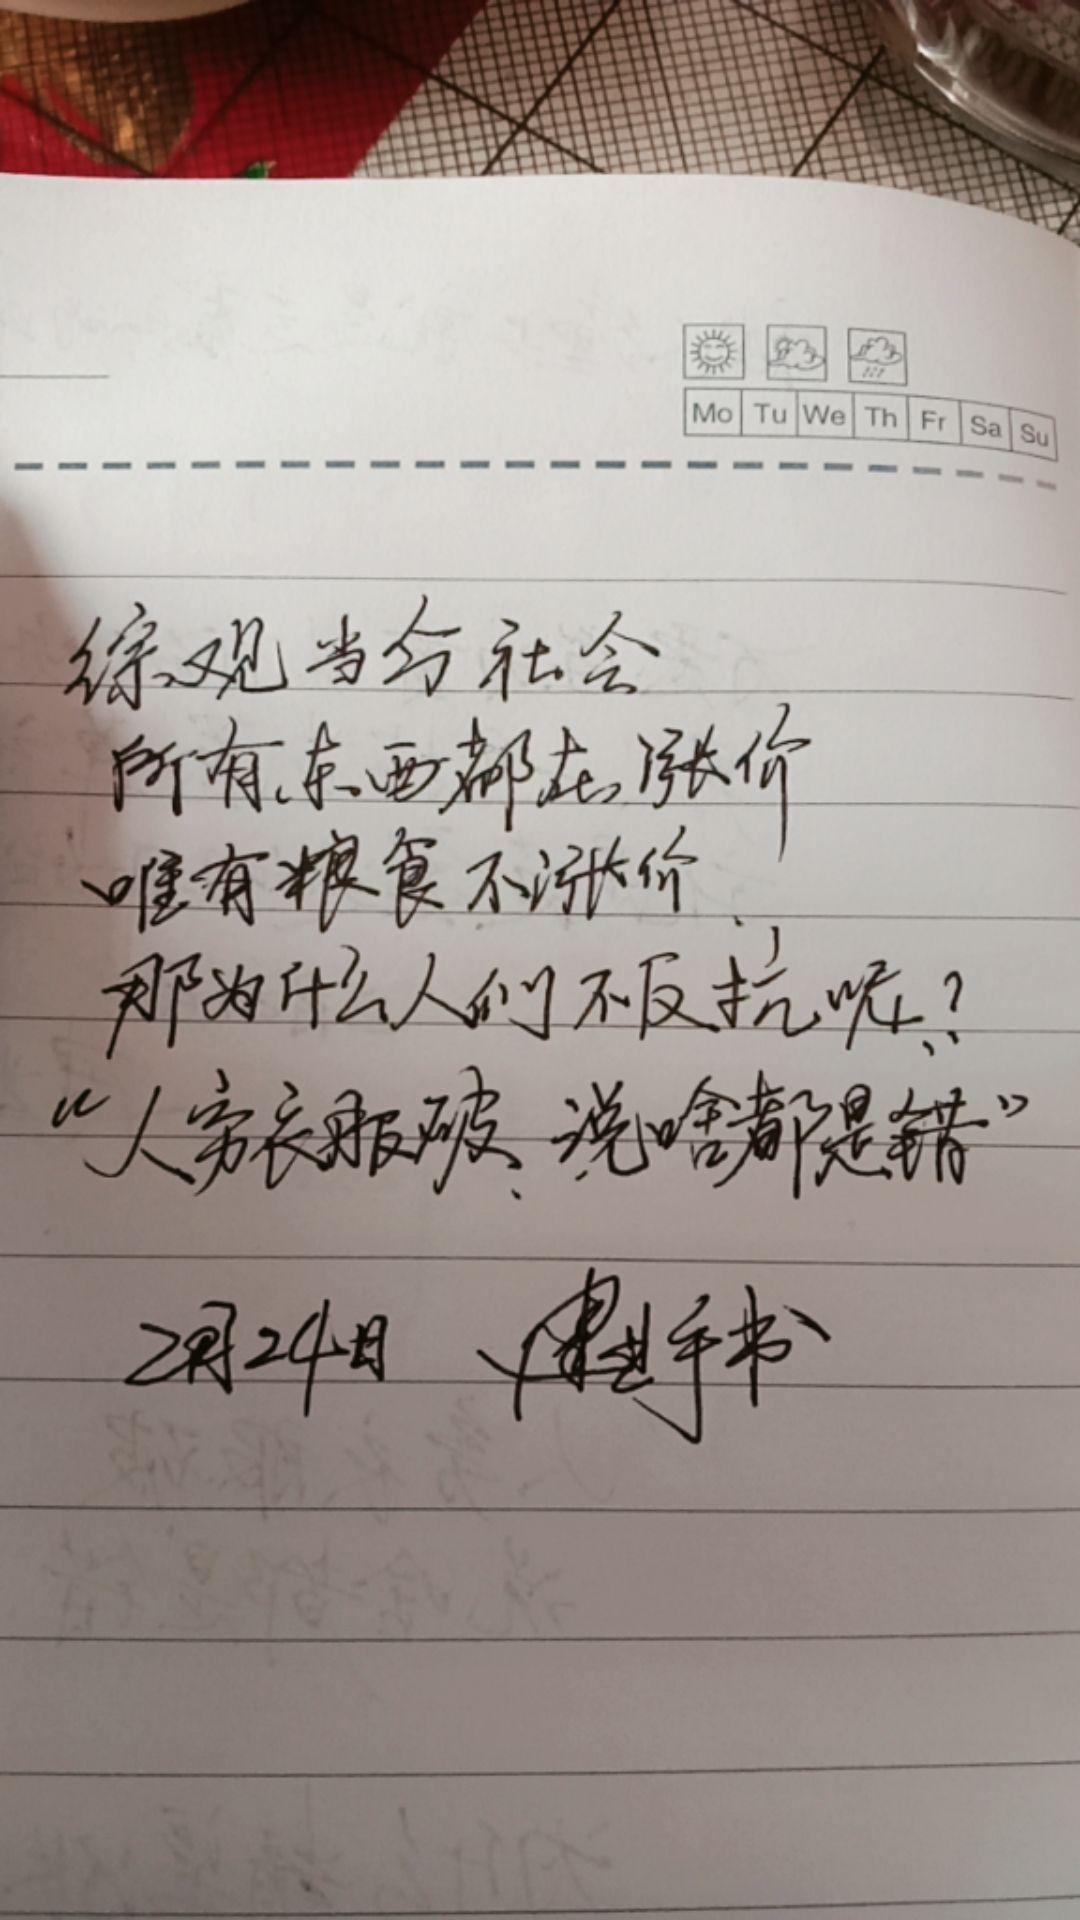 Mo Tu We Th Fr Sa Su
综观当今社会
所有东西都在涨价
唯有粮食不涨价
那为什么人们不反抗呢?
“人穷衣服破、说啥都是错”
2月24日 手书